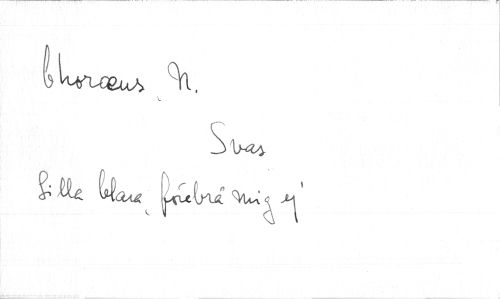 Choraeus, N.
Svar
Lilla Clara, förebrå mig ej